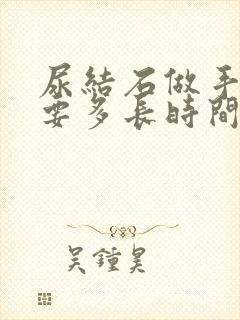 尿結石做手
要多長時間
吳鍾昊